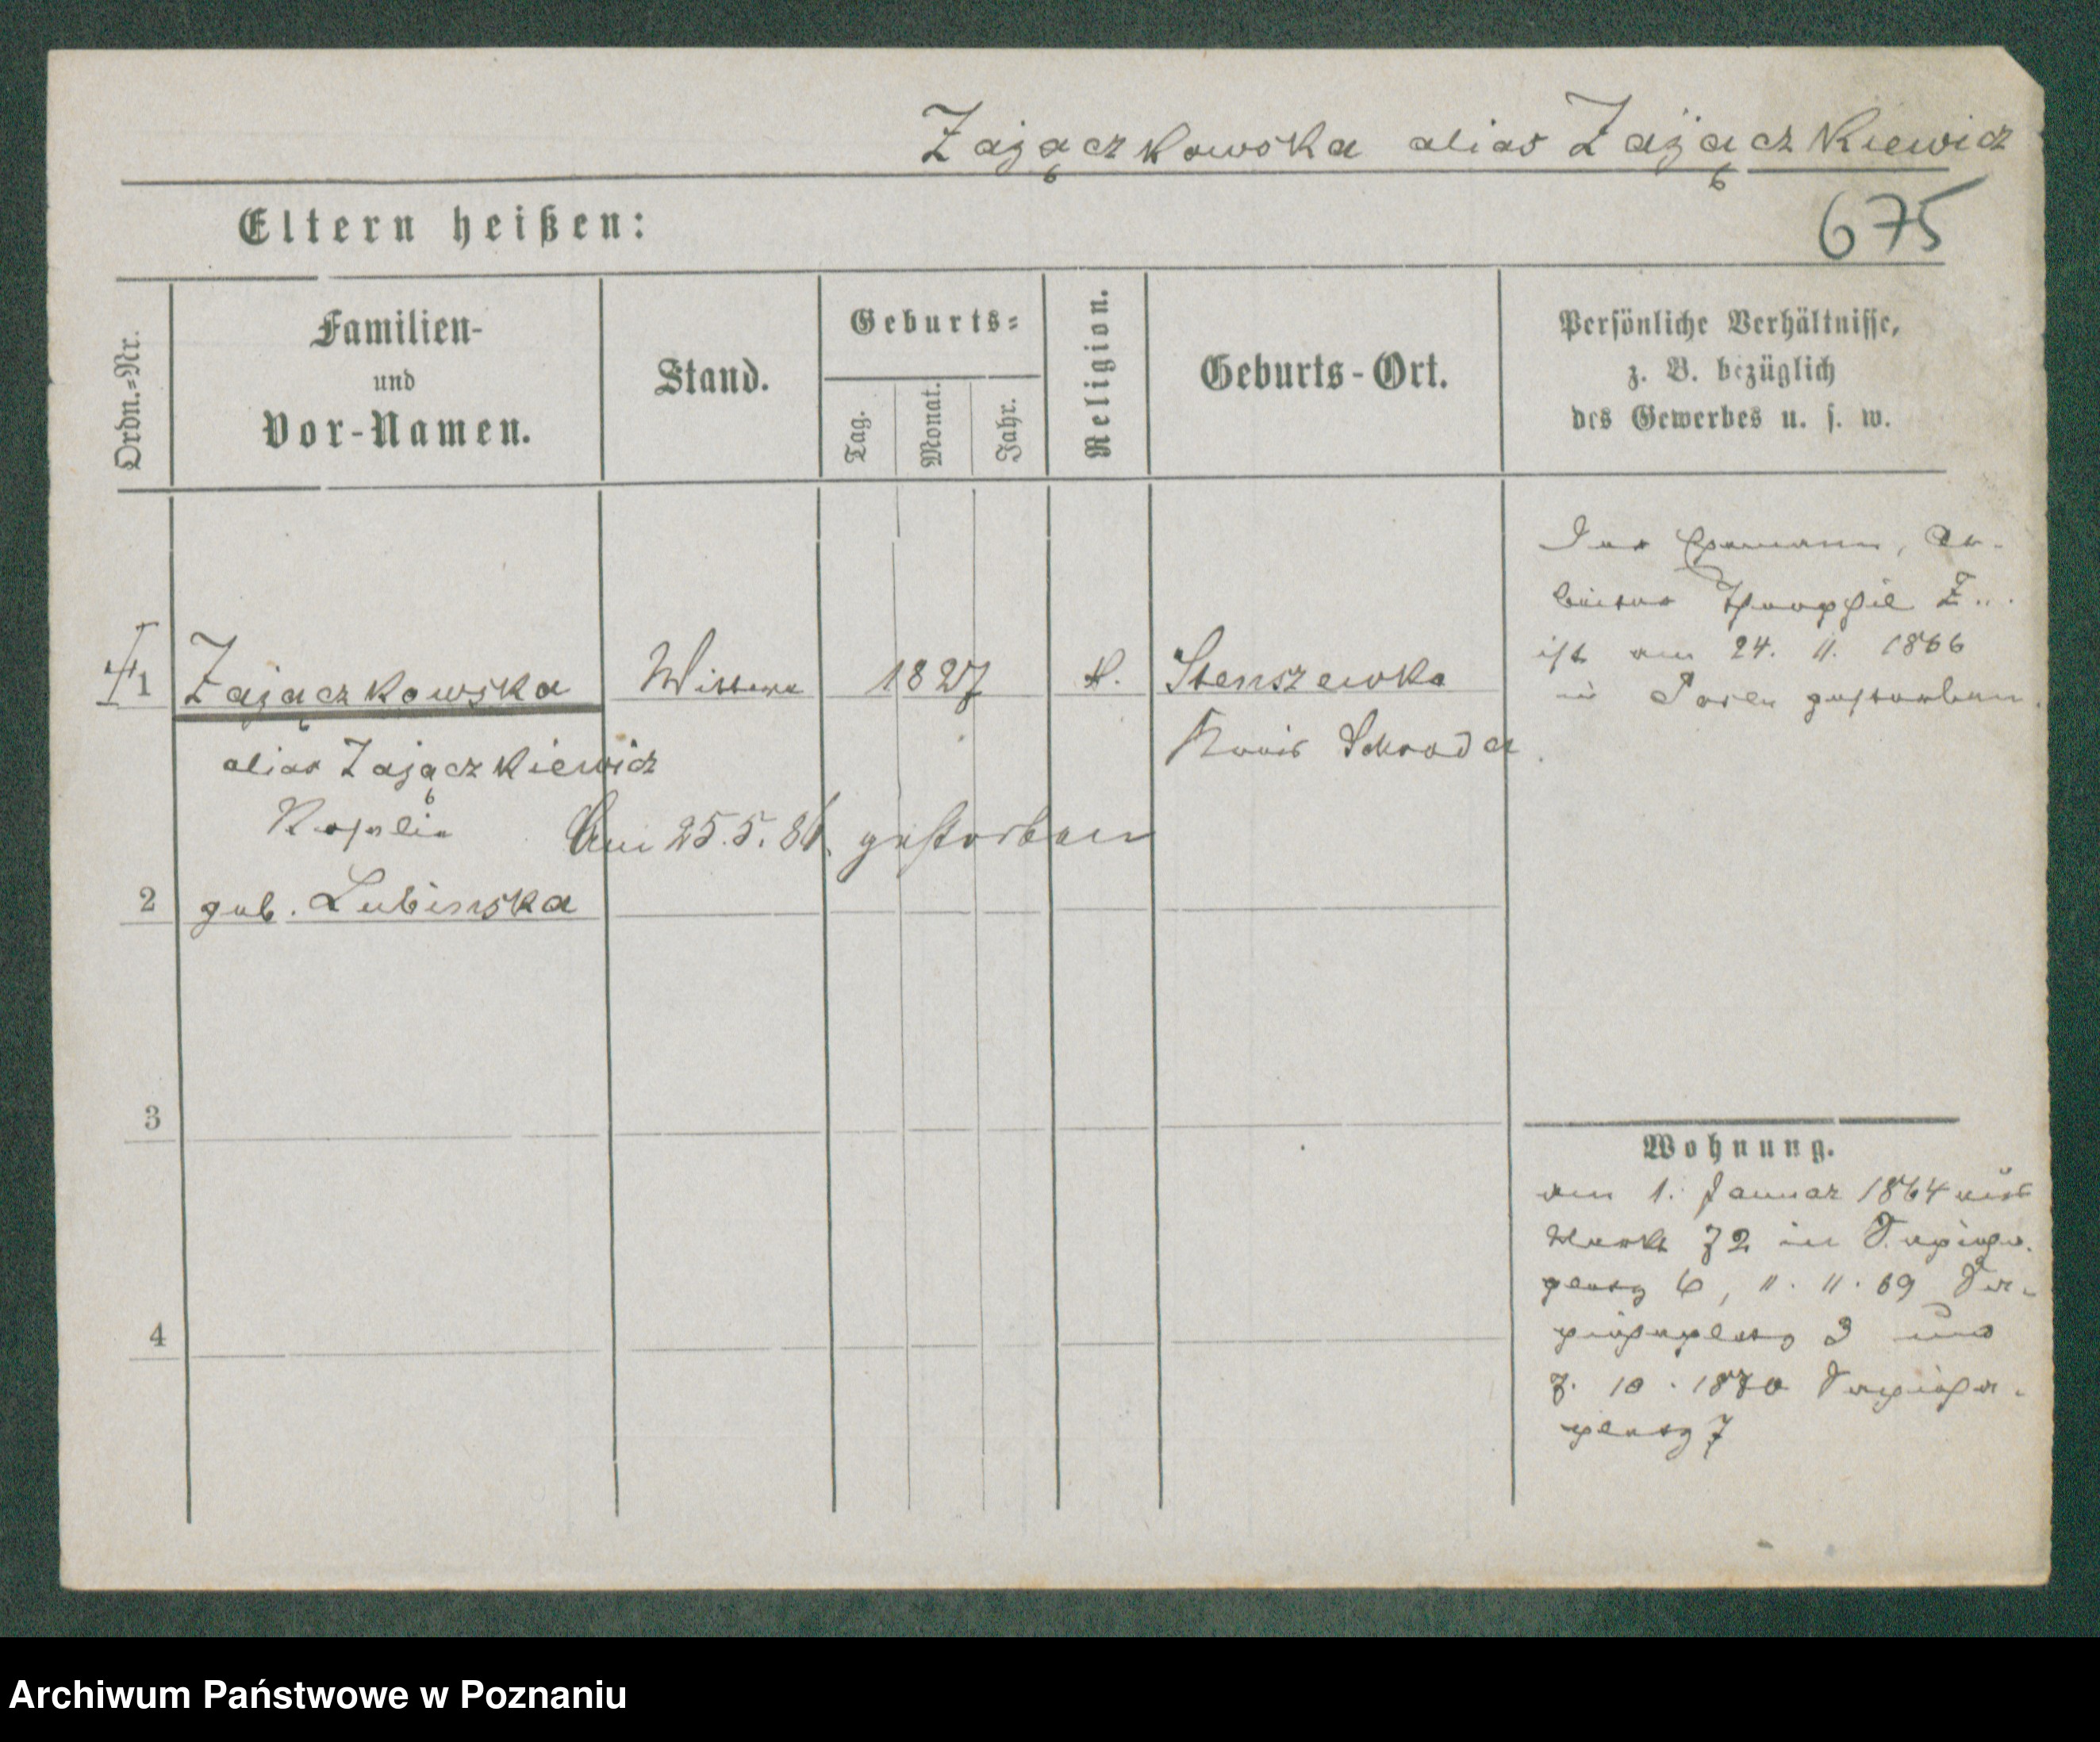 Zajączkowska alias Zajączkiewicz
Eltern heißen:
675
Ordn.=Nr.
Familien-
und
Vor-Namen.
Stand.
Geburts=
Tag.
Monat.
Jahr.
Religion.
Geburts-Ort.
Persönliche Verhältnisse,
z. B. bezüglich
des Gewerbes u. s. w.
1 Zajączkowska Wittwe 1827 k. Stenszewko
alias Zajączkiewicz Kreis Schroda
Rosalia Am 25.5.81 gestorben
2 geb. Lubinska
3
4
Der Ehemann, Ar-
beiter Theophil Z...
ist am 24. 11. 1866
in Posen gestorben.
Wohnung.
am 1. Januar 1864 aus
Markt 72 in Sapieha-
platz 6, 11. 11. 69 Sa-
piehaplatz 3 und
7. 10. 1870 Sapieha-
platz 7
Archiwum Państwowe w Poznaniu